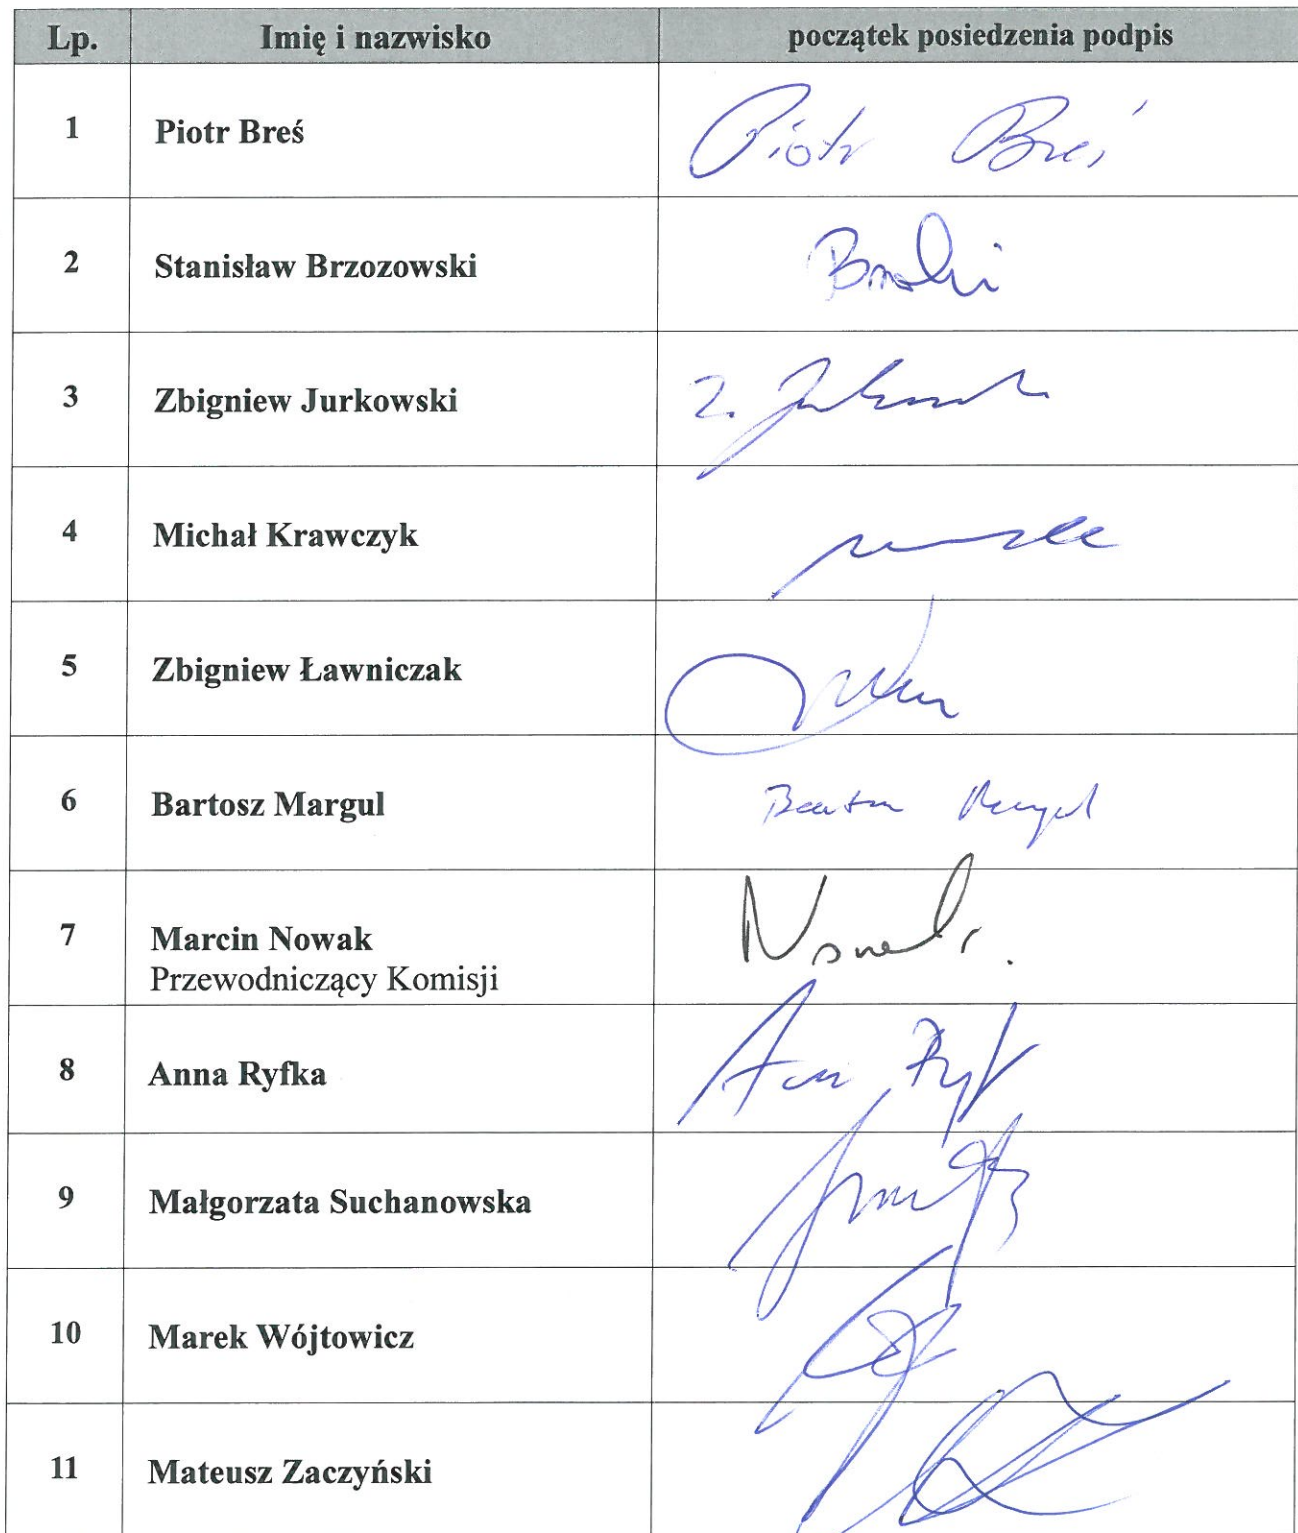 Lp. Imię i nazwisko początek posiedzenia podpis
1 Piotr Breś Piotr Breś
2 Stanisław Brzozowski
3 Zbigniew Jurkowski Z.
4 Michał Krawczyk
5 Zbigniew Ławniczak
6 Bartosz Margul
7 Marcin Nowak
Przewodniczący Komisji
8 Anna Ryfka
9 Małgorzata Suchanowska
10 Marek Wójtowicz
11 Mateusz Zaczyński